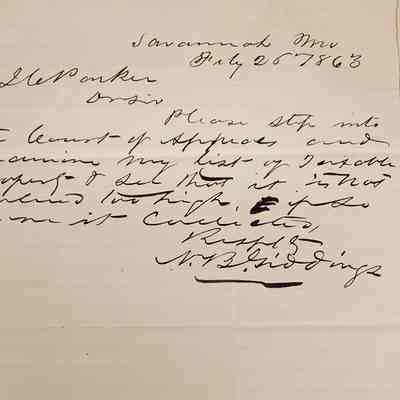 Savannah Mo
Feby 26th 1863
J C Parker
Dr Sir
Please step into
Court of Appeals and
examine my list of Taxable
property & see that it is not
valued too high, & if so
have it Corrected,
Respfly
N. B. Giddings